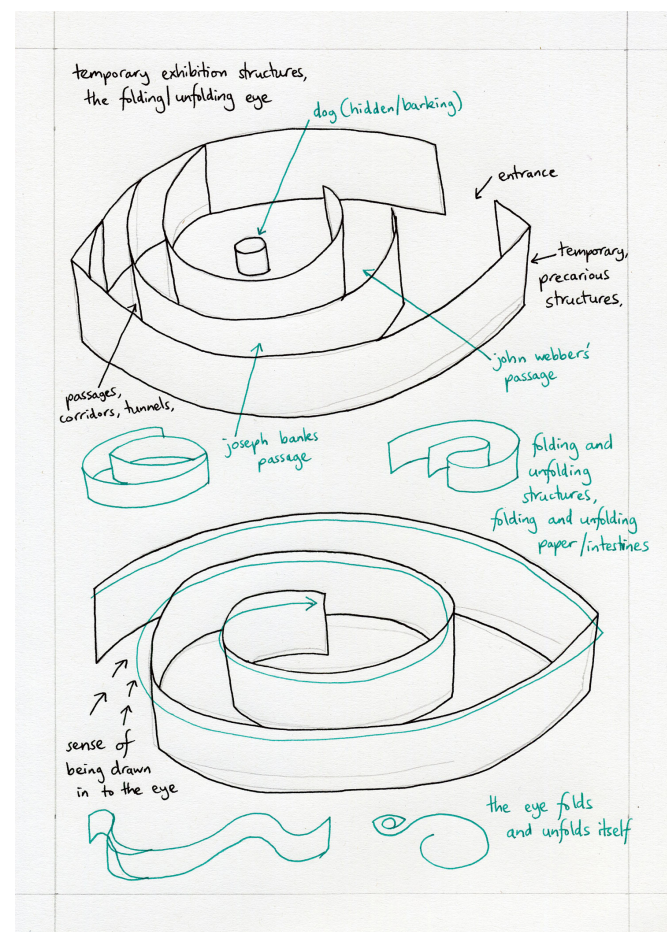 temporary exhibition structures,
the folding/unfolding eye
dog (hidden/barking)
entrance
temporary,
precarious
structures,
john webber's
passage
passages,
corridors, tunnels,
joseph banks
passage
folding and
unfolding
structures,
folding and unfolding
paper/intestines
sense of
being drawn
in to the eye
the eye folds
and unfolds itself